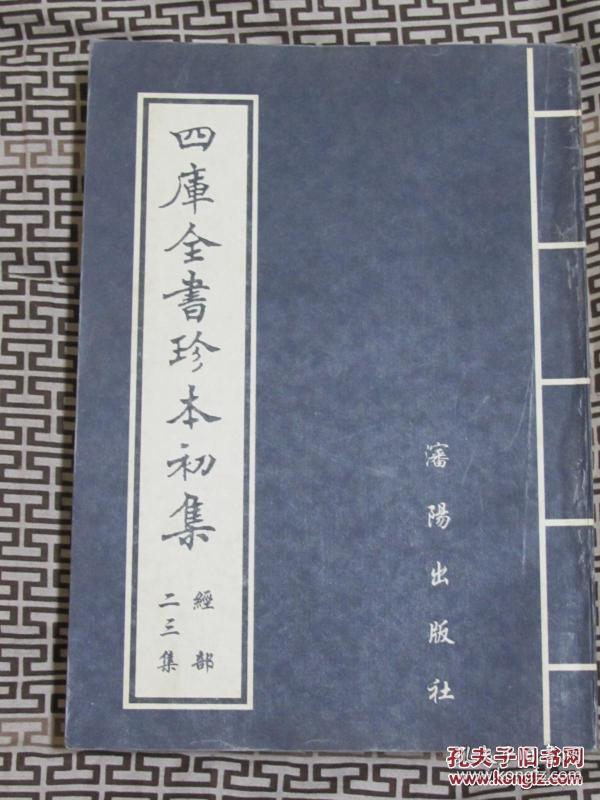 四庫全書珍本初集
經部
二三集
瀋陽出版社
孔夫子旧书网